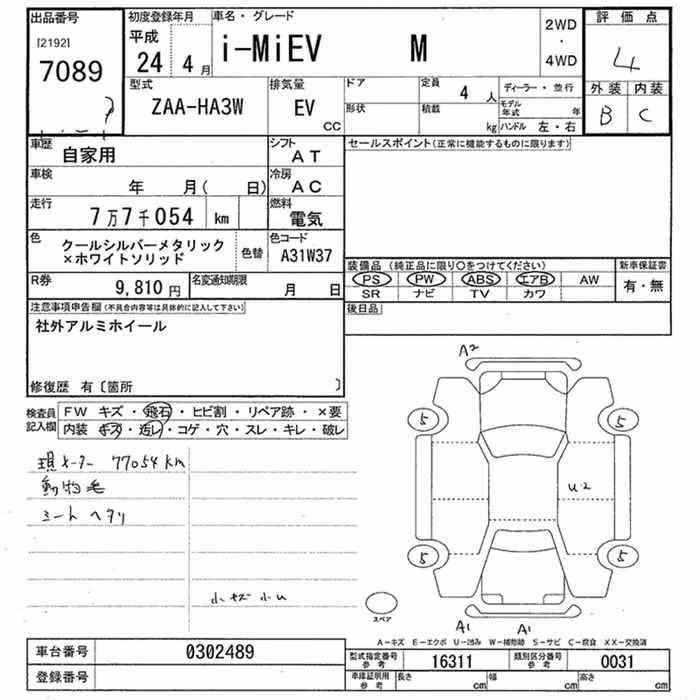 出品番号
[2192]
7089
初度登録年月
平成
24 4月
車名・グレード
i-MiEV M
2WD
・
4WD
評価点
4
外装 内装
B C
型式
ZAA-HA3W
排気量
EV
CC
ドア
形状
定員
4人
積載
kg
ディーラー・並行
モデル年式 年
ハンドル 左・右
車歴
自家用
シフト
AT
車検
年 月( 日)
冷房
AC
走行
7万7千054 km
燃料
電気
色
クールシルバーメタリック
×ホワイトソリッド
色替
色コード
A31W37
R券
9,810円
名変通知期限
月 日
セールスポイント(正常に機能するものに限ります)
装備品 (純正品に限り〇をつけてください)
PS PW ABS エアB AW
SR ナビ TV カワ
新車保証書
有・無
後日品
注意事項申告欄(不具合内容等は具体的に記入して下さい)
社外アルミホイール
修復歴 有〔箇所 〕
検査員
記入欄
FW キズ・飛石・ヒビ割・リペア跡・×要
内装 キズ・汚レ・コゲ・穴・スレ・キレ・破レ
現メーター 77054km
動物毛
シートヘタリ
小キズ小U
A2
5 5
U2
5 5
A1 A1
スペア
A-キズ E-エクボ U-凹み W-補修跡 S-サビ C-腐食 XX-交換済
車台番号 0302489
登録番号
型式指定番号
参考
16311
類別区分番号
参考
0031
車庫証明用
参考
長さ cm 幅 cm 高さ cm